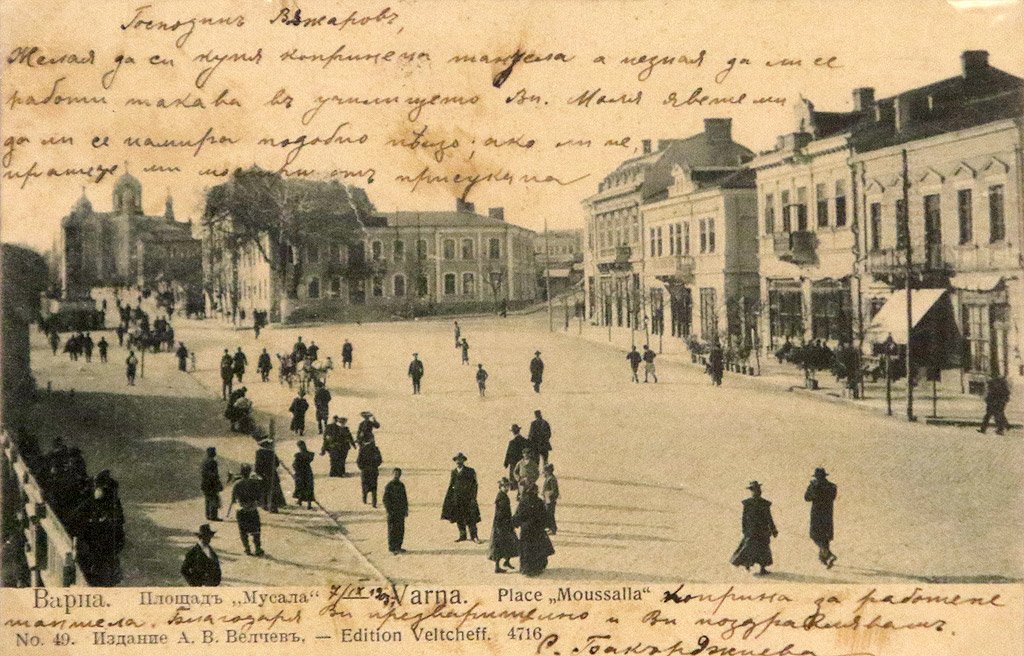 Господинъ Вѫжаровъ,
Желая да си купя копринена тантела а незная да ли се
работи такава въ училището Ви. Моля явете ми
да ли се намира подобно нѣщо; ако ли не,
пратете ми мостри отъ присукана
Варна. Площадъ „Мусала“ 7/IX Varna. Place „Moussalla“ коприна за работене
тантела. Благодаря Ви предварително и Ви поздравлявамъ.
No. 49. Издание А. В. Велчевъ, — Edition Veltcheff. 4716
С. Бакърджиева